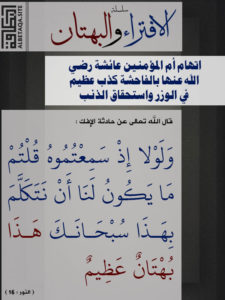 البطاقة
ALBETAQA-SITE
سلسلة
الافتراء والبهتان
اتهام أم المؤمنين عائشة رضي
الله عنها بالفاحشة كذب عظيم
في الوزر واستحقاق الذنب
قال الله تعالى عن حادثة الإفك :
وَلَوْلَا إِذْ سَمِعْتُمُوهُ قُلْتُمْ
مَا يَكُونُ لَنَا أَنْ نَتَكَلَّمَ
بِهَذَا سُبْحَانَكَ هَذَا
بُهْتَانٌ عَظِيمٌ
( النور : 16 )